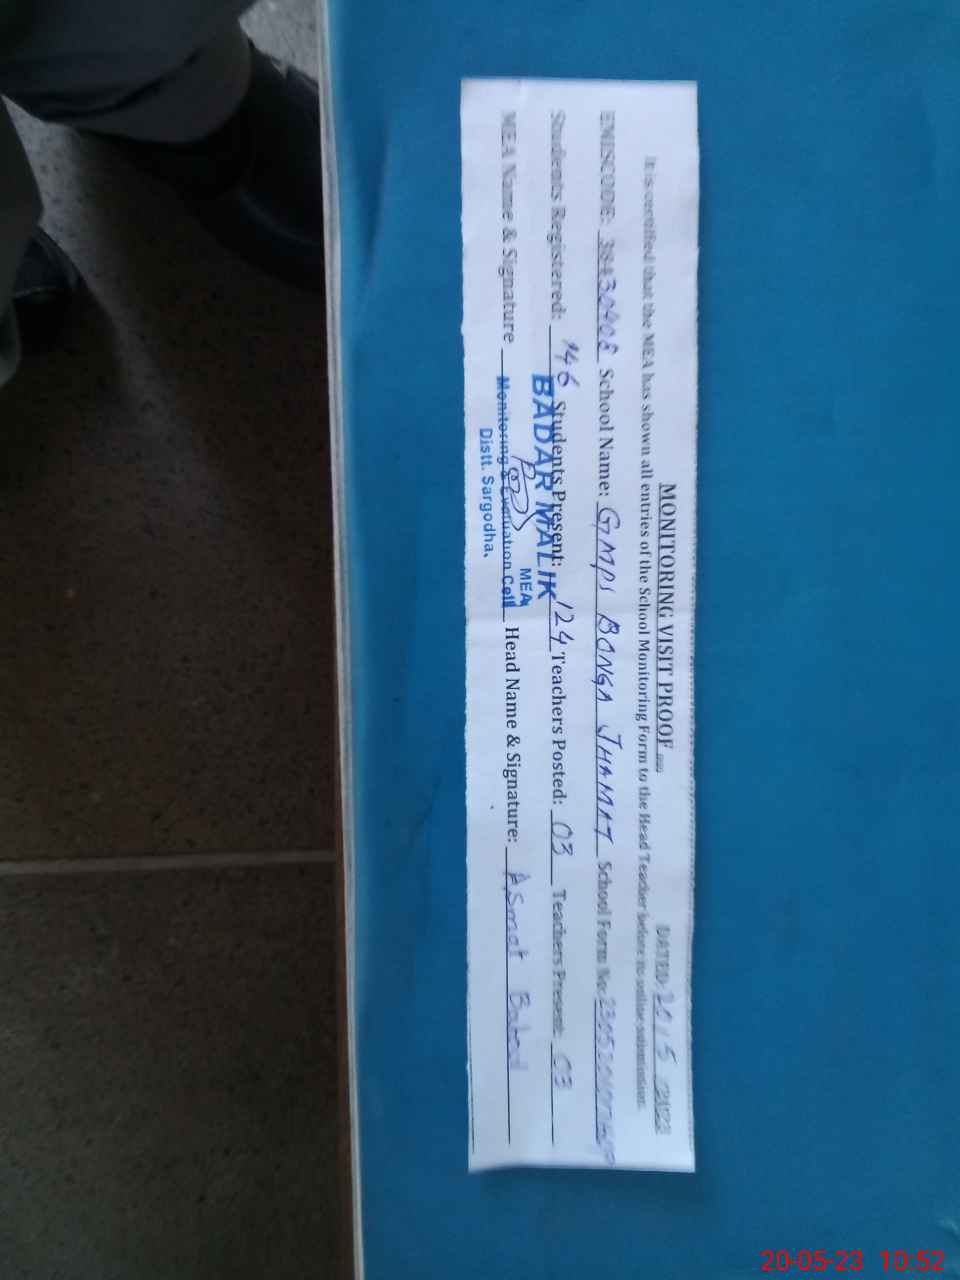 MONITORING VISIT PROOF
DATED: 20/5/2023
It is certified that the MEA has shown all entries of the School Monitoring Form to the Head Teacher before its online submission.
EMISCODE: 38430408 School Name: GMPS BONGA JHAMAT School Form No:
Students Registered: 146 Students Present: 124 Teachers Posted: 03 Teachers Present: 03
BADAR MALIK
MEA
MEA Name & Signature Monitoring & Evaluation Cell Head Name & Signature: Asmat
Distt. Sargodha.
20-05-23 10:52